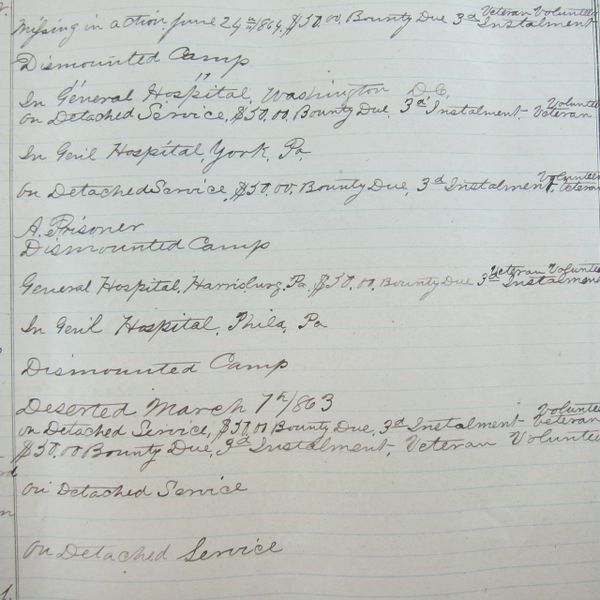 Missing in action June 24th 1864, $50.00 Bounty Due 3d Instalment Veteran Volunteer
Dismounted Camp
In General Hospital, Washington D.C.
On Detached Service, $50.00, Bounty Due, 3d Instalment Veteran Voluntee
In Genl Hospital, York, Pa
On Detached Service $50.00, Bounty Due, 3d Instalment, Veteran Volunteer
A. Prisoner
Dismounted Camp
General Hospital, Harrisburg, Pa, $50.00, Bounty Due 3d Instalment Veteran Voluntee
In Genl Hospital, Phila, Pa
Dismounted Camp
Deserted March 7th/863
on Detached Service, $50,00 Bounty Due, 3d Instalment Veteran Voluntee
$50.00 Bounty Due, 3d Instalment, Veteran Voluntee
On Detached Service
On Detached Service